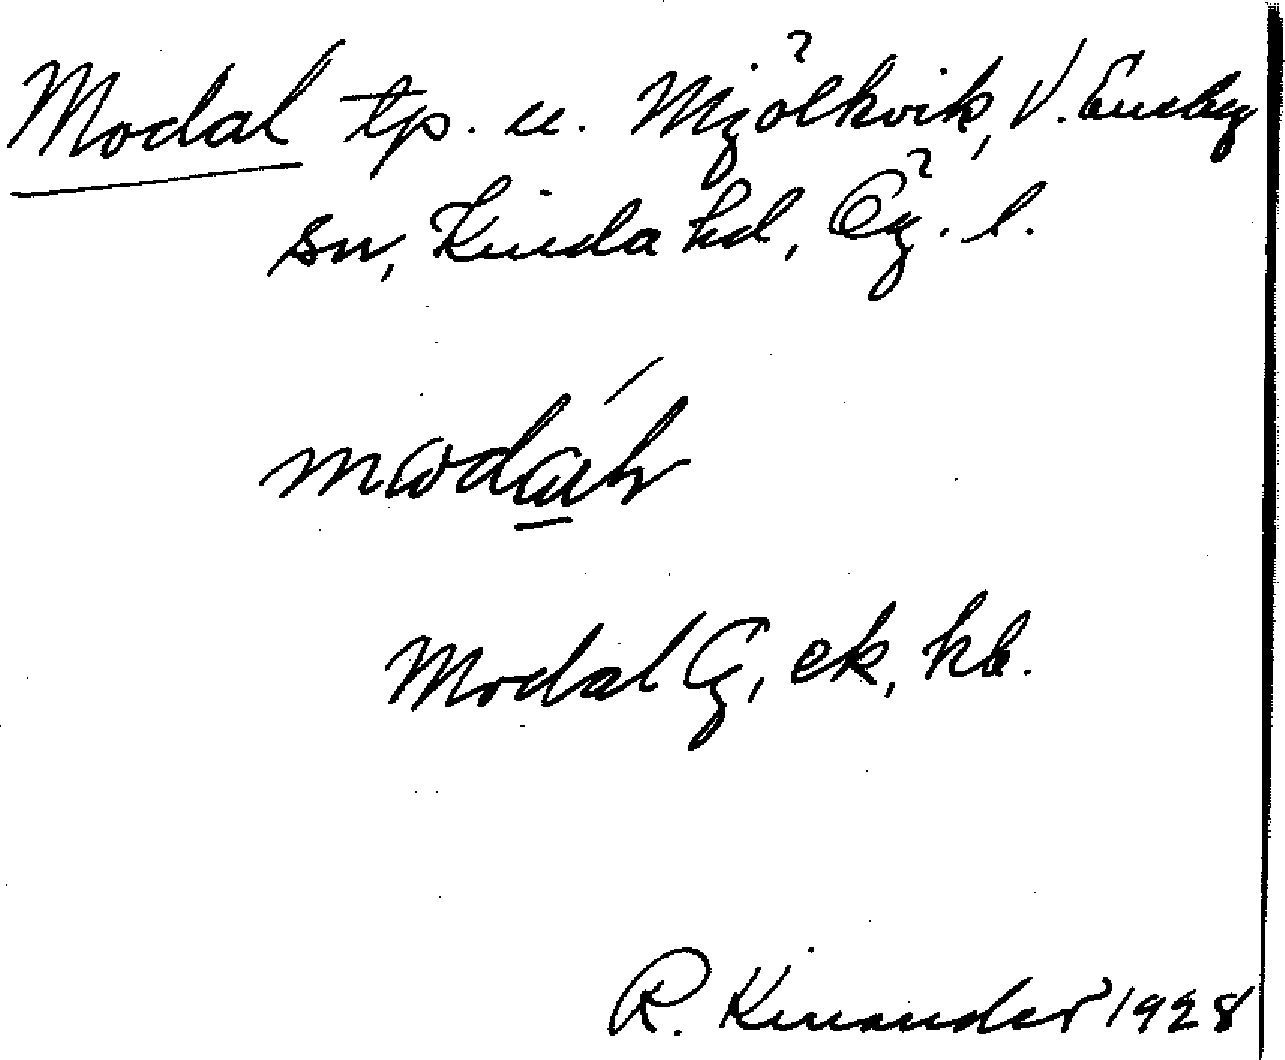 Modal tp. u. Mjölkvik, V. Eneby
sn, Kinda hd, Ög. l.
Modal G, ek, hb.
R. Kinander 1928